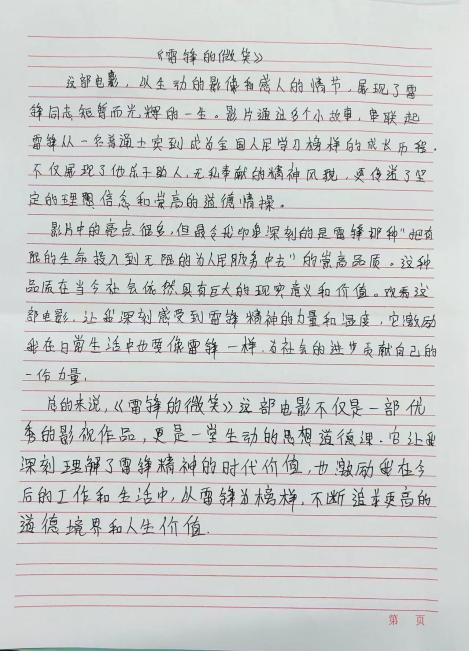 《雷锋的微笑》
这部电影，以生动的影像和感人的情节，展现了雷
锋同志短暂而光辉的一生。影片通过多个小故事，串联起
雷锋从一名普通士实到成为全国人民学习榜样的成长历程。
不仅展现了他乐于助人，无私奉献的精神风貌，更传递了坚
定的理想信念和崇高的道德情操。
影片中的亮点很多，但最令我印象深刻的是雷锋那种“把有
限的生命投入到无限的为人民服务中去”的崇高品质。这种
品质在当今社会依然具有巨大的现实意义和价值。观看这
部电影，让我深刻感受到雷锋精神的力量和温度，它激励
我在日常生活中也要像雷锋一样，为社会的进步贡献自己的
一份力量，
总的来说，《雷锋的微笑》这部电影不仅是一部优
秀的影视作品，更是一堂生动的思想道德课．它让我
深刻理解了雷锋精神的时代价值，也激励我在今
后的工作和生活中，以雷锋为榜样，不断追求更高的
道德境界和人生价值．
第　页